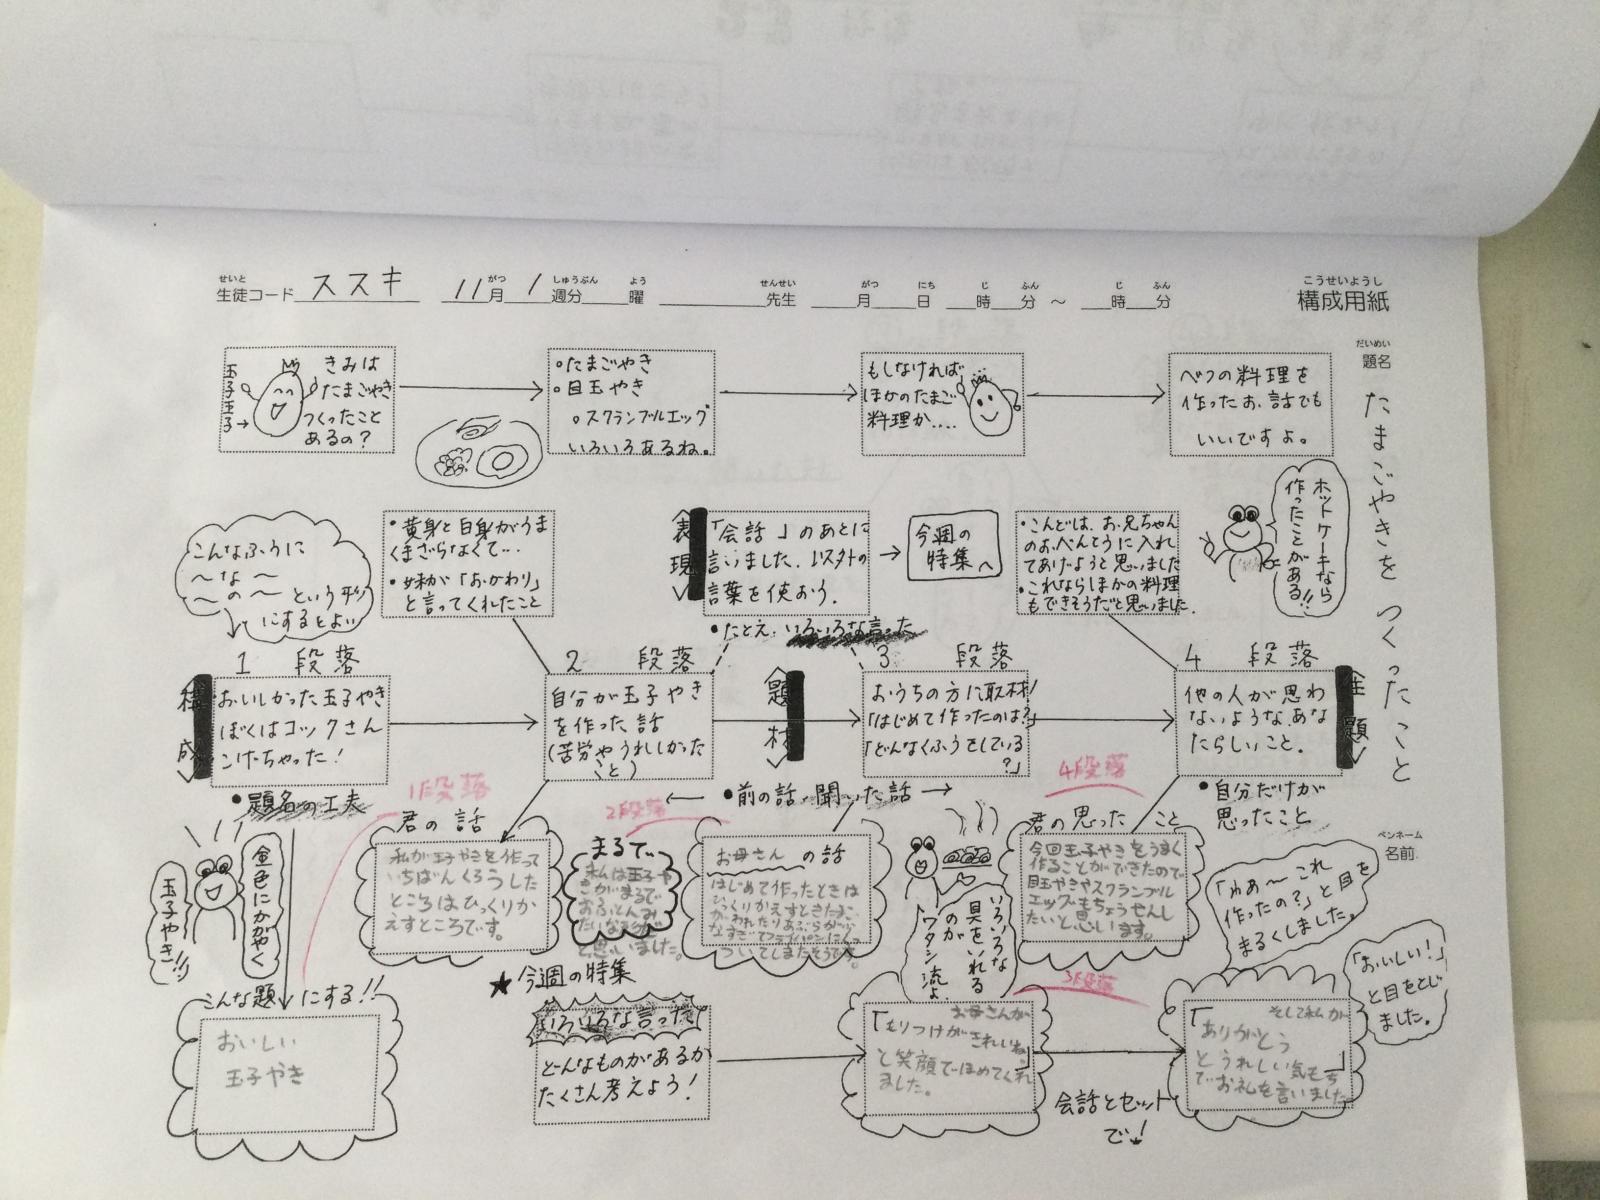 せいと
生徒コード ススキ 11月 1週分 曜 先生 月 日 時 分 ~ 時 分
がつ しゅうぶん よう せんせい がつ にち じ ふん じ ふん
こうせいようし
構成用紙
だいめい
題名
たまごやきをつくったこと
玉子王子→
きみは
たまごやき
つくったこと
あるの?
○たまごやき
○目玉やき
○スクランブルエッグ
いろいろあるね。
もしなければ
ほかのたまご
料理か....
べつの料理を
作ったお話でも
いいですよ。
ホットケーキなら
作ったことがある!!
こんなふうに
~な~
~の~という形
にするとよい
・黄身と白身がうま
くまざらなくて…
・妹が「おかわり」
と言ってくれたこと
表現
「会話」のあとに
言いました。以外の
言葉を使おう。
今週の
特集へ
・こんどは、お兄ちゃん
のおべんとうに入れ
てあげようと思いました
・これならほかの料理
もできそうだと思いました。
・たとえ、いろいろな言った
1 段落
構成
おいしかった玉子やき
ぼくはコックさん
こげちゃった!
・題名の工夫
2 段落
自分が玉子やき
を作った話
(苦労やうれしかった
こと)
題材
3 段落
おうちの方に取材!
「はじめて作ったのは?」
「どんなくふうをしている
?」
←・前の話、聞いた話→
4 段落
他の人が思わ
ないような、あな
たらしいこと。
主題
・自分だけが
思ったこと
1段落
2段落
4段落
3段落
金色にかがやく
玉子やき!!
君の話
私が玉子やきを作って
いちばんくろうした
ところはひっくりか
えすところです。
まるで、
私は玉子や
きがまるで
おふとんみ
たいなのだ
と思いました。
お母さんの話
はじめて作ったときは
ひっくりかえすときたまご
がわれたりあぶらが少
なすぎてフライパンにくっ
ついてしまたそうです。
いろいろな
具をいれる
のが
ワタシ流よ
君の思ったこと
今回玉子やきをうまく
作ることができたので
目玉やきやスクランブル
エッグもちょうせんし
たいと思います。
ペンネーム
名前
「わぁ~これ
作ったの?」と目を
まるくしました。
「おいしい!」
と目をとじ
ました。
こんな題にする!!
おいしい
玉子やき
★今週の特集
いろいろな言った
どんなものがあるか
たくさん考えよう!
お母さんが
「もりつけがきれいね」
と笑顔でほめてくれ
ました。
会話とセット
で↓
そして私が
「ありがとう」
とうれしい気もち
でお礼を言いました。